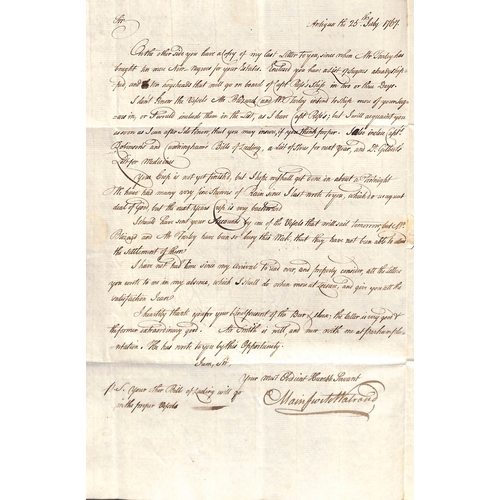 Sir Antigua the 25th July 1767.
On the other side you have a Copy of my last Letter to you, since when Mr Farley has
bought ten more New Negroes for your Estates. Enclosed you have a List of Sugars already ship-
ped, and Hogsheads that will go on board of Capt Ross's Ship in two or three Days.
I don't know the Vessels Mr and Mr Farley intend to Ship more of your Sugars
in, or I would include them in the List, as I have Capt Ross's, but I will acquaint you
as soon as I can after I do know, that you may insure, if you think proper. I also inclose Capt
Robinson's and Cunningham's Bills of Lading, a List of Stores for next Year, and D. Gilbert's
List for Medicines
Your Crop is not yet finished, but I hope will get done in about a Fortnight
We have had many very fine Showers of Rain since I last wrote to you, which do us great
deal of Good, but the next Years Crop is very backward
I should have sent your Accounts by one of the Vessels that will sail tomorrow, but Mr
and Mr Farley have been so busy this Week, that they have not been able to
the Settlement of them.
I have not had time since my arrival to look over, and properly consider, all the letters
you wrote to me in my absence, which I shall do when more at Leisure, and give you all the
satisfaction I can.
I heartily thank you for your kind present of the Beer & the latter is very good &
the former extraordinary good. Mr Smith is well, and now with me at plan-
tation. He has wrote to you by this Opportunity.
I am, Sr.
Your most Obedient Humble Servant
Main Swete Walrond
P.S. Your other Bills of Lading will go
in the proper Vessels